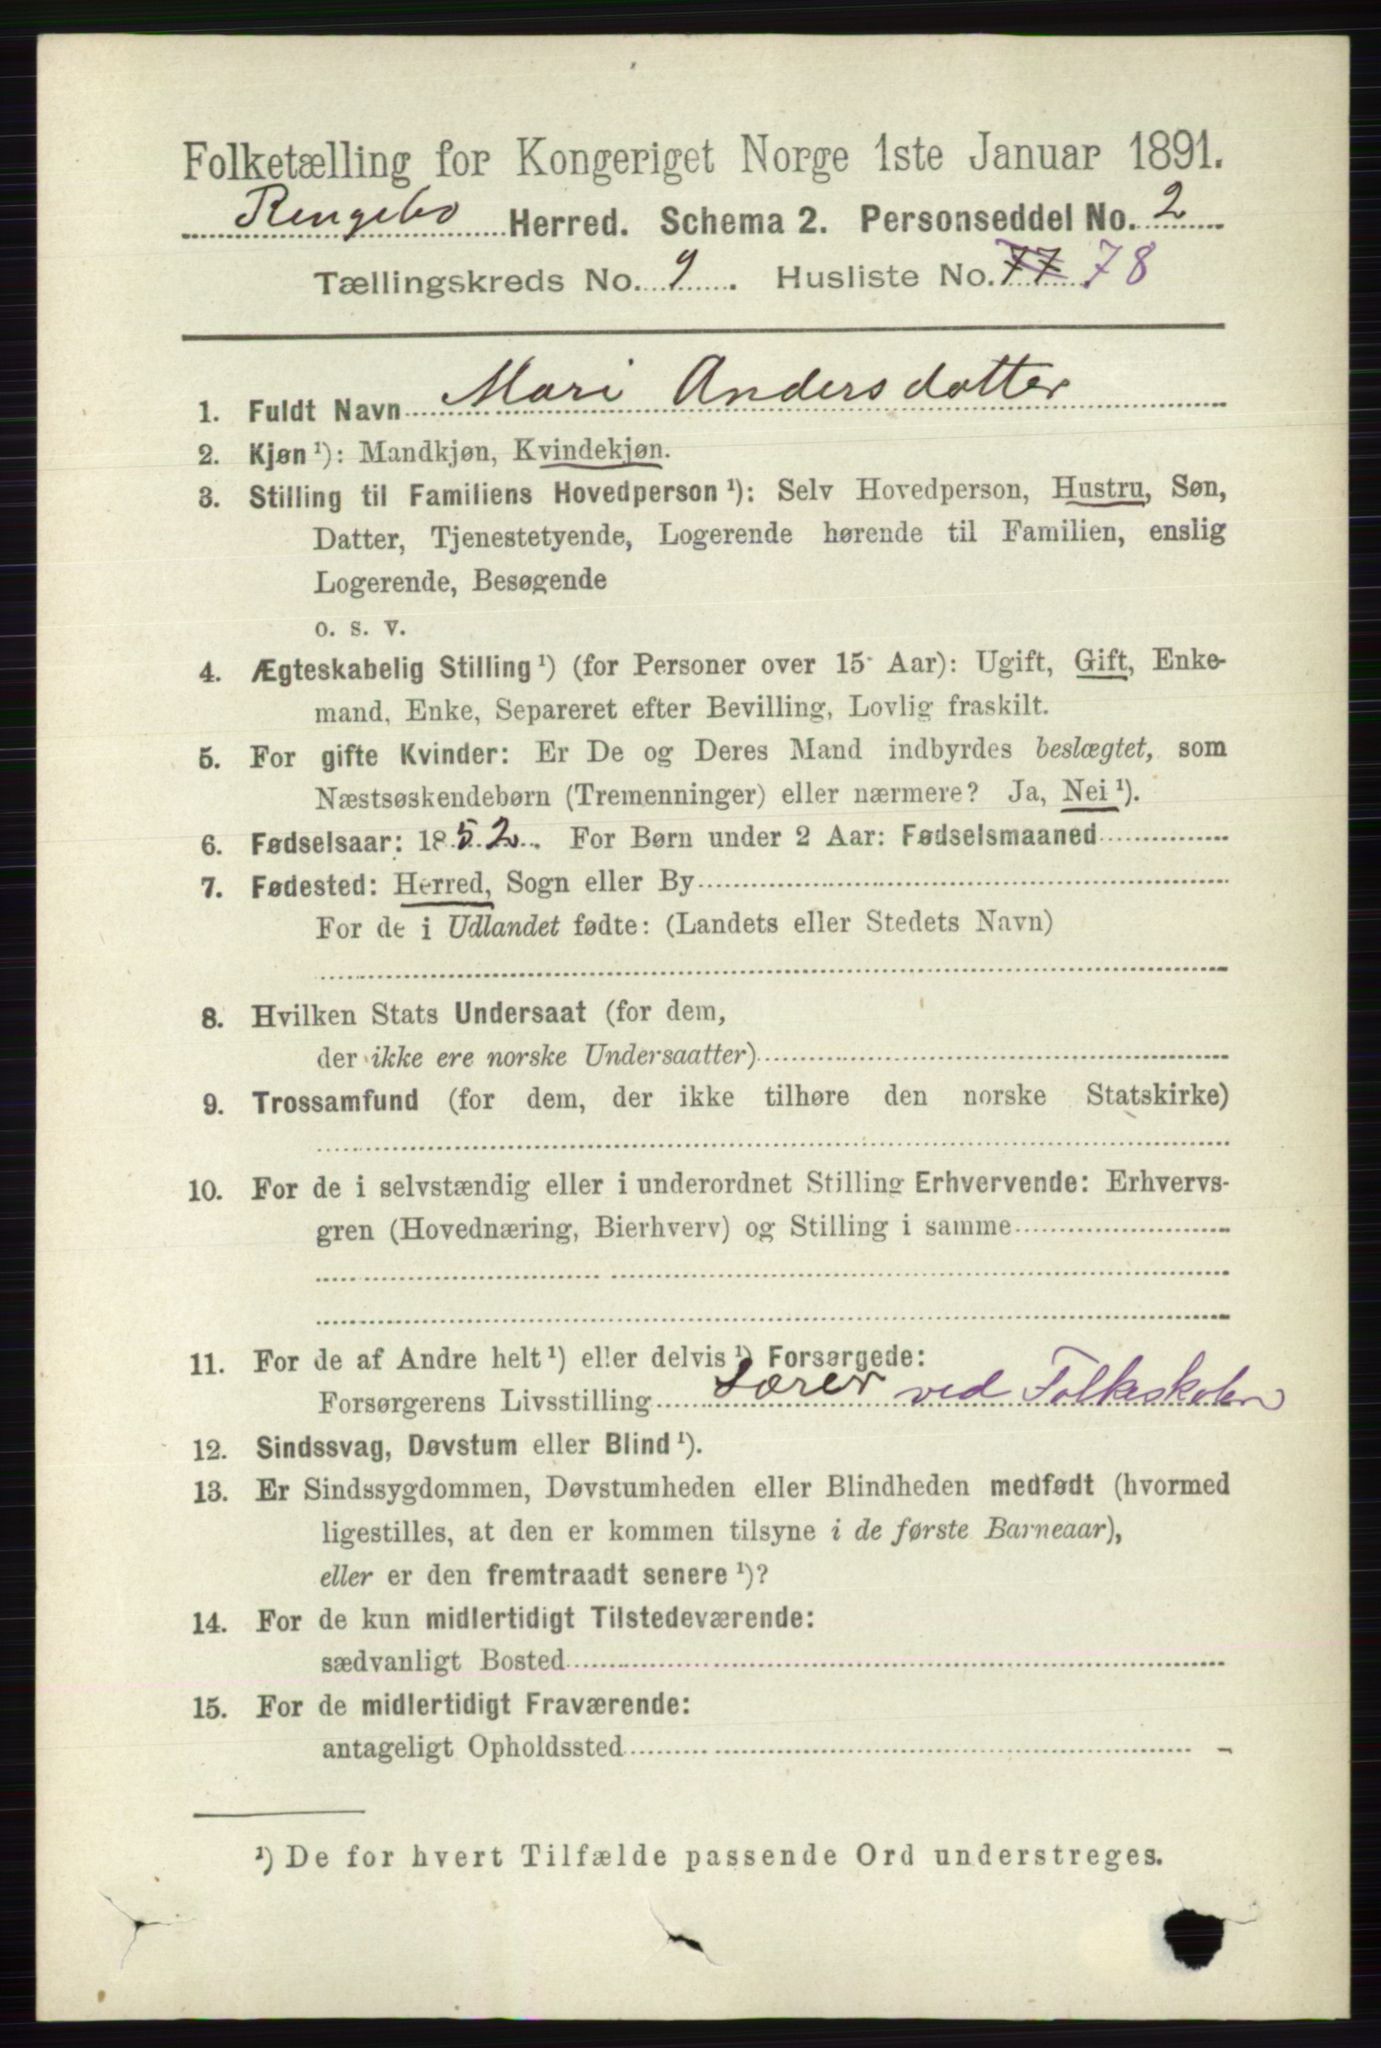 Folketælling for Kongeriget Norge 1ste Januar 1891.
Ringebo Herred. Schema 2. Personseddel No. 2
Tællingskreds No. 9. Husliste No. 77 78
1. Fuldt Navn Mari Andersdatter
2. Kjøn ¹): Mandkjøn, Kvindekjøn.
3. Stilling til Familiens Hovedperson ¹): Selv Hovedperson, Hustru, Søn,
Datter, Tjenestetyende, Logerende hørende til Familien, enslig
Logerende, Besøgende
o. s. v.
4. Ægteskabelig Stilling ¹) (for Personer over 15 Aar): Ugift, Gift, Enke-
mand, Enke, Separeret efter Bevilling, Lovlig fraskilt.
5. For gifte Kvinder: Er De og Deres Mand indbyrdes beslægtet, som
Næstsøskendebørn (Tremenninger) eller nærmere? Ja, Nei ¹).
6. Fødselsaar: 1852. For Børn under 2 Aar: Fødselsmaaned
7. Fødested: Herred, Sogn eller By
For de i Udlandet fødte: (Landets eller Stedets Navn)
8. Hvilken Stats Undersaat (for dem,
der ikke ere norske Undersaatter)
9. Trossamfund (for dem, der ikke tilhøre den norske Statskirke)
10. For de i selvstændig eller i underordnet Stilling Erhvervende: Erhvervs-
gren (Hovednæring, Bierhverv) og Stilling i samme
11. For de af Andre helt ¹) eller delvis ¹) Forsørgede:
Forsørgerens Livsstilling Lærer ved Folkeskolen
12. Sindssvag, Døvstum eller Blind ¹).
13. Er Sindssygdommen, Døvstumheden eller Blindheden medfødt (hvormed
ligestilles, at den er kommen tilsyne i de første Barneaar),
eller er den fremtraadt senere ¹)?
14. For de kun midlertidigt Tilstedeværende:
sædvanligt Bosted
15. For de midlertidigt Fraværende:
antageligt Opholdssted
¹) De for hvert Tilfælde passende Ord understreges.